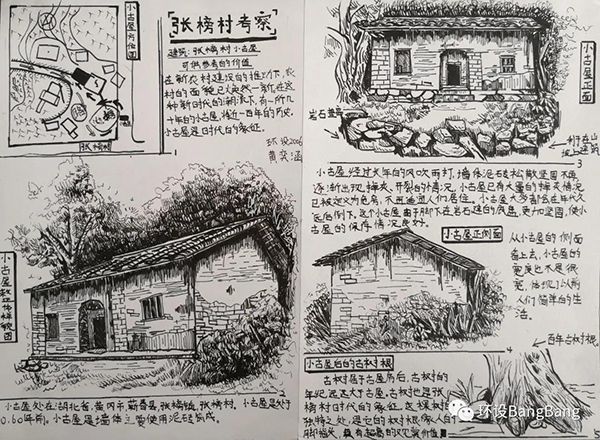 张榜村考察
建筑：张榜村小古屋
可供参考的价值
在新农村建设的推动下，农
村的面貌已焕然一新，在这
种新时代的潮流下，有一所几
十年的小古屋，将近一百年的历史，
小古屋是旧时代的象征。
环设2006
黄奕涵
小古屋方位图
张榜村
1
小古屋整体样貌图
2
小古屋处在湖北省，黄冈市，蕲春县，张榜镇，张榜村，小古屋是处于
小古屋是墙体主要使用泥砖筑成。
小古屋正面
岩石垫底
利于在山
坡上建筑
3
小古屋经过长年的风吹雨打，墙体泥砖松散坚固不再，
逐渐出现掉夹、开裂的情况，小古屋已有大量的掉夹情况
已被定义为危房，不再适合人们居住，小古屋大多都会在年代久
远后倒下，这个小古屋由于脚下在岩石建的成度，更加坚固，使小
古屋的保存情况良好。
小古屋正侧面
从小古屋的侧面
看上去，小古屋的
宽度也不是很
宽，体现了以前
人们简单的生
活。
4
百年古树根
小古屋后的古树根
古树属于古屋前后，古树的
年纪远远大于古屋，古树也是张榜
村旧时代的象征，这棵树
独特之处，是它的树根像人的
5
环设BangBang